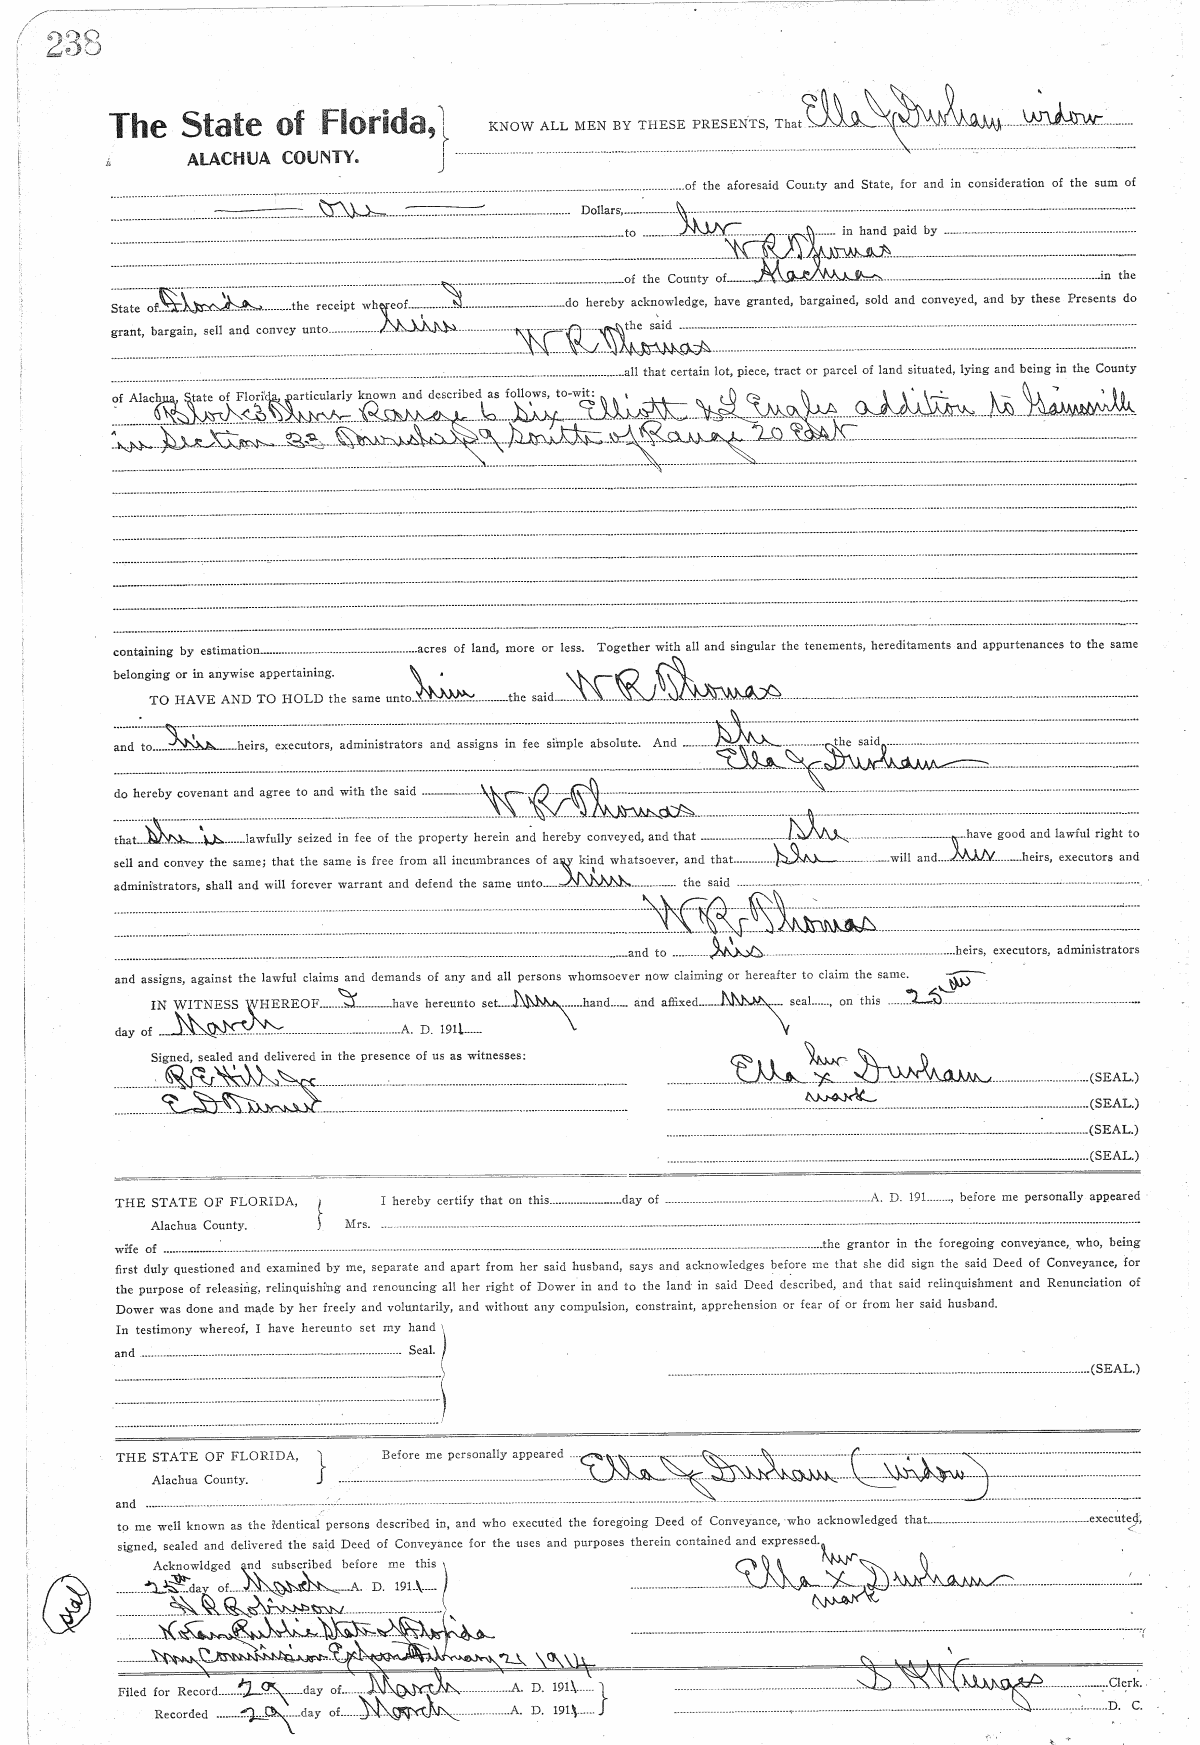 238
The State of Florida, KNOW ALL MEN BY THESE PRESENTS, That Ella J Durham widow
ALACHUA COUNTY.
of the aforesaid County and State, for and in consideration of the sum of
one Dollars,
to her in hand paid by
W R Thomas
of the County of Alachua in the
State of Florida the receipt whereof I do hereby acknowledge, have granted, bargained, sold and conveyed, and by these Presents do
grant, bargain, sell and convey unto him the said
W R Thomas
all that certain lot, piece, tract or parcel of land situated, lying and being in the County
of Alachua, State of Florida, particularly known and described as follows, to-wit:
Block 3 Three Range 6 Six Elliott & L Engles addition to Gainesville
in Section 33 Township 9 South of Range 20 East
containing by estimation acres of land, more or less. Together with all and singular the tenements, hereditaments and appurtenances to the same
belonging or in anywise appertaining.
TO HAVE AND TO HOLD the same unto him the said W R Thomas
and to his heirs, executors, administrators and assigns in fee simple absolute. And she the said
Ella J Durham
do hereby covenant and agree to and with the said
W R Thomas
that she is lawfully seized in fee of the property herein and hereby conveyed, and that she have good and lawful right to
sell and convey the same; that the same is free from all incumbrances of any kind whatsoever, and that she will and her heirs, executors and
administrators, shall and will forever warrant and defend the same unto him the said
W R Thomas
and to his heirs, executors, administrators
and assigns, against the lawful claims and demands of any and all persons whomsoever now claiming or hereafter to claim the same.
IN WITNESS WHEREOF I have hereunto set my hand and affixed my seal, on this 25th
day of March A. D. 1911
Signed, sealed and delivered in the presence of us as witnesses:
her
R E Hill Jr Ella x Durham (SEAL.)
E D Turner mark (SEAL.)
(SEAL.)
(SEAL.)
THE STATE OF FLORIDA, I hereby certify that on this day of A. D. 191 , before me personally appeared
Alachua County. Mrs.
wife of the grantor in the foregoing conveyance, who, being
first duly questioned and examined by me, separate and apart from her said husband, says and acknowledges before me that she did sign the said Deed of Conveyance, for
the purpose of releasing, relinquishing and renouncing all her right of Dower in and to the land in said Deed described, and that said relinquishment and Renunciation of
Dower was done and made by her freely and voluntarily, and without any compulsion, constraint, apprehension or fear of or from her said husband.
In testimony whereof, I have hereunto set my hand
and Seal.
(SEAL.)
THE STATE OF FLORIDA, Before me personally appeared
Alachua County. Ella J Durham (widow)
and
to me well known as the identical persons described in, and who executed the foregoing Deed of Conveyance, who acknowledged that executed,
signed, sealed and delivered the said Deed of Conveyance for the uses and purposes therein contained and expressed.
Acknowldged and subscribed before me this her
25th day of March A. D. 1911 Ella x Durham
seal H R Robinson mark
Notary Public State of Florida
My Commission Expires February 21 1914
Filed for Record 29 day of March A. D. 1911 S H Wienges Clerk.
Recorded 29 day of March A. D. 1911 D. C.